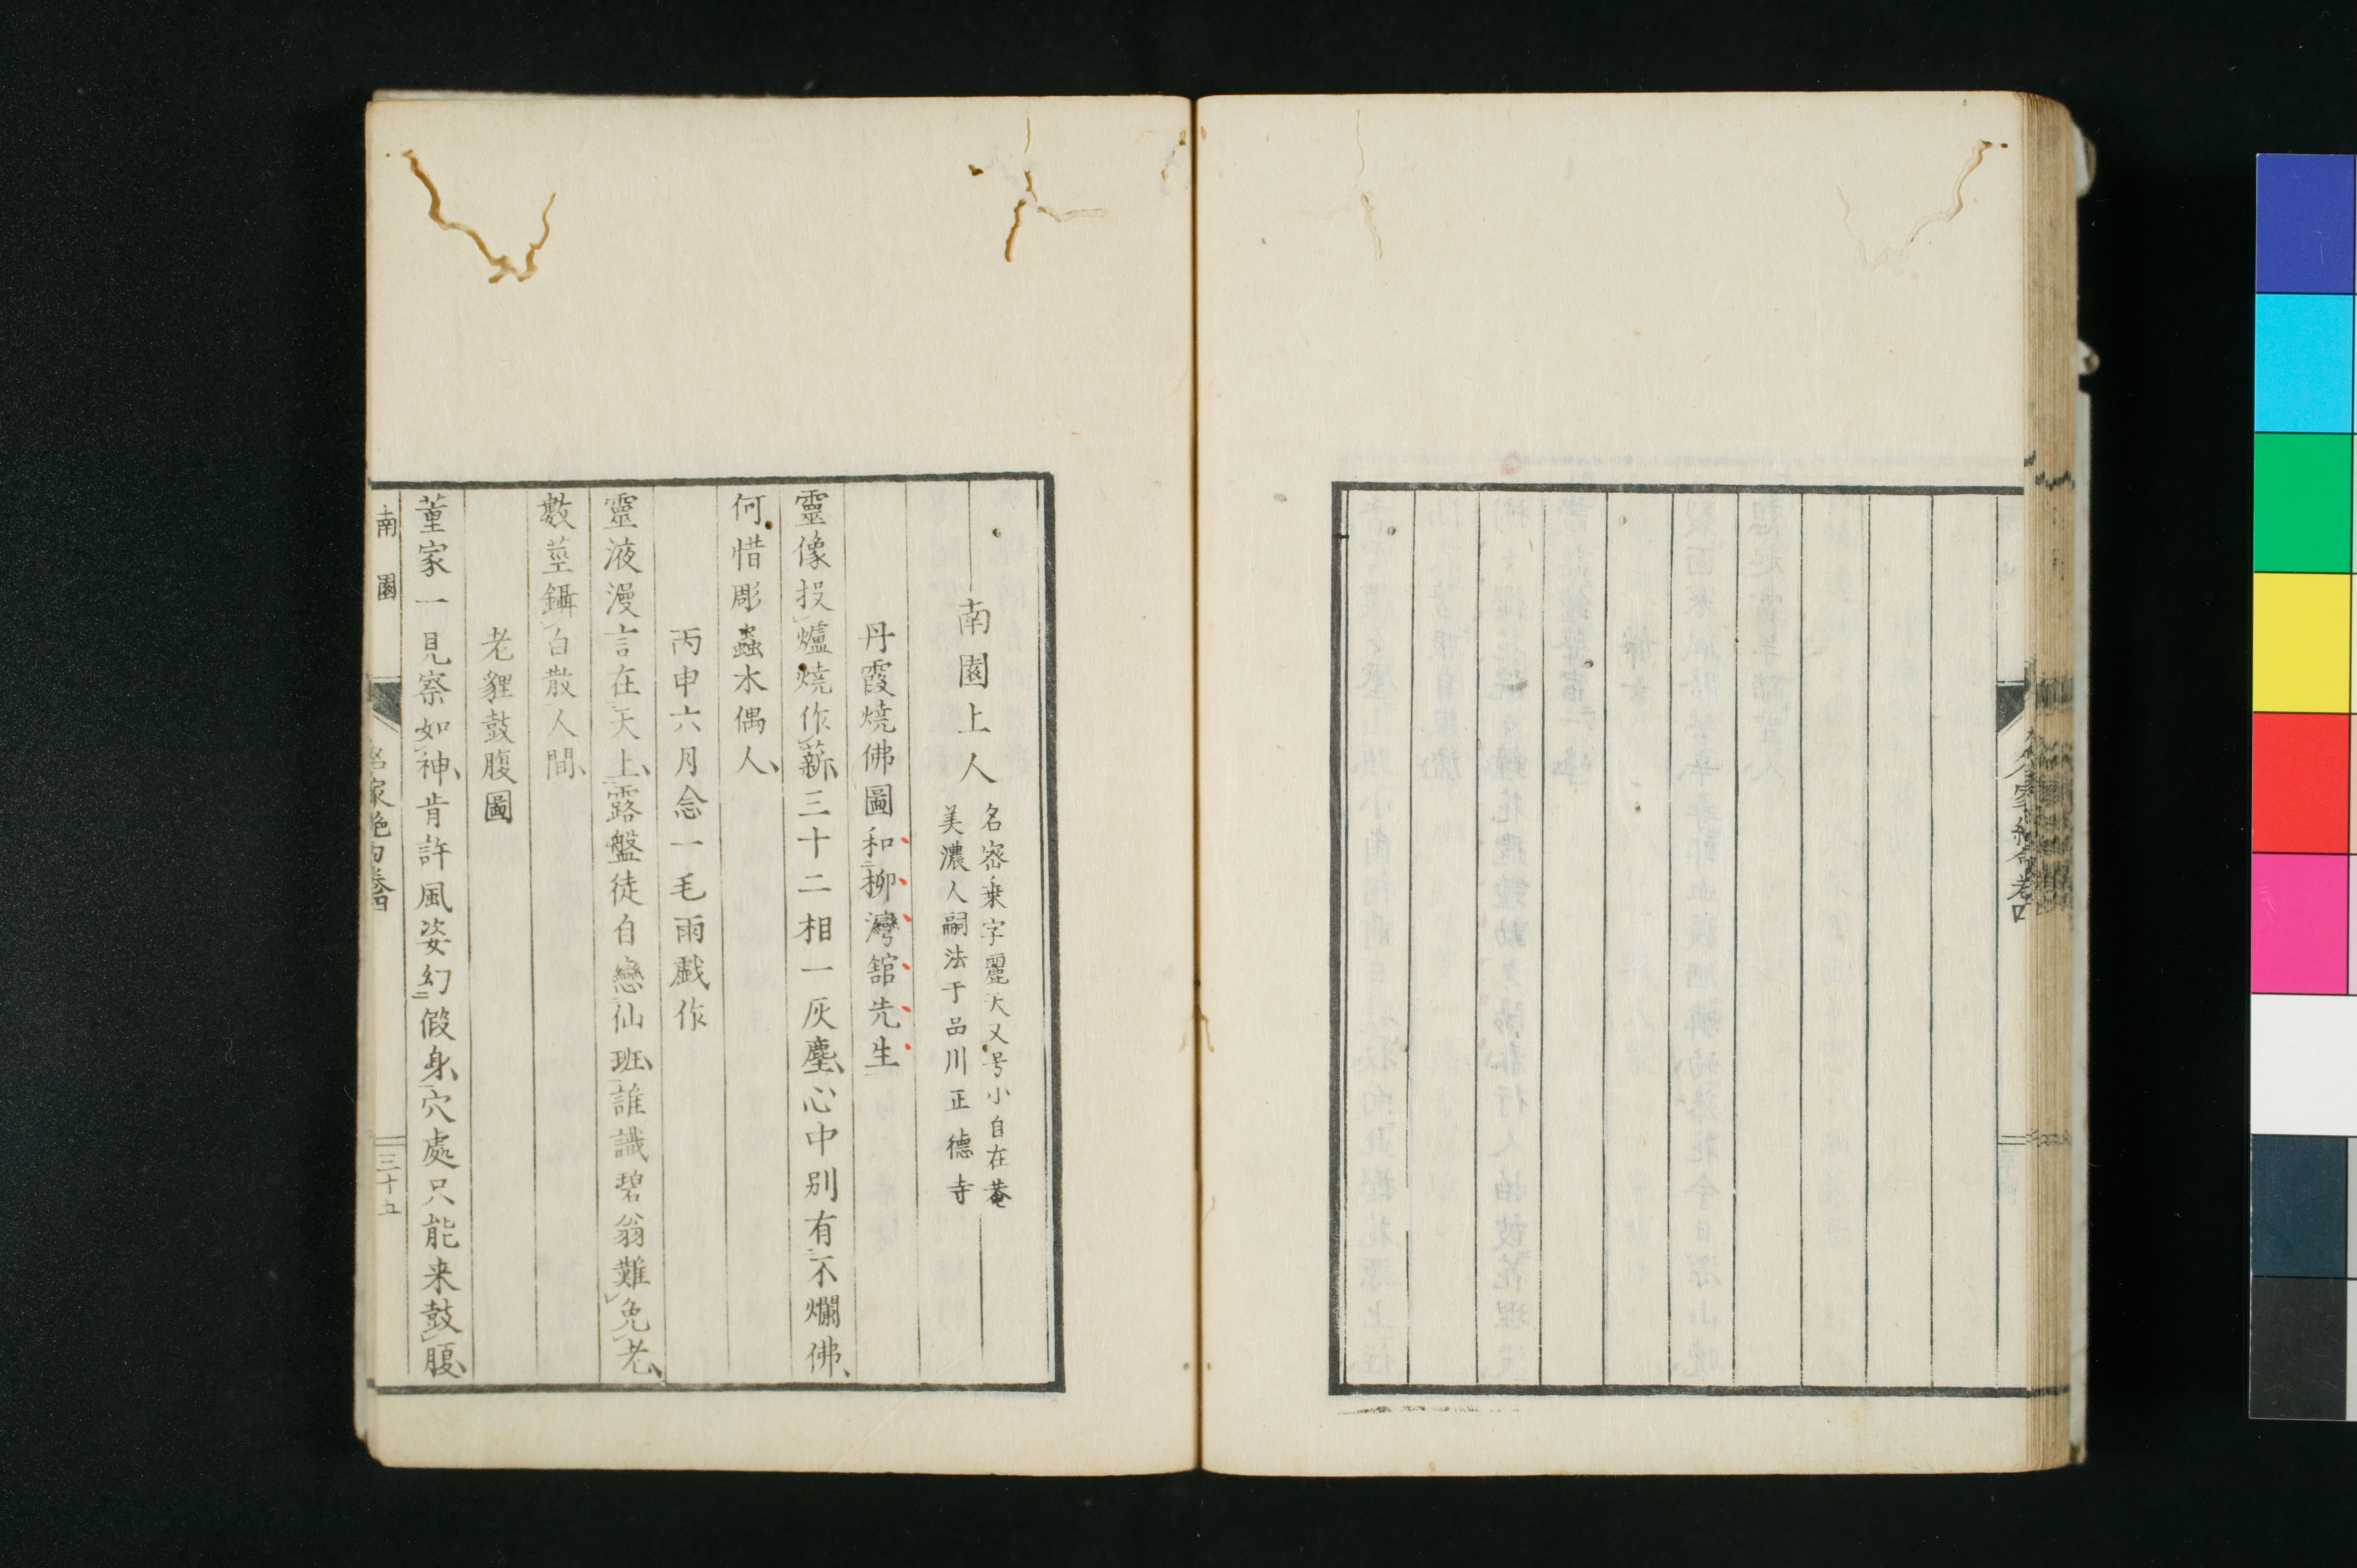 南園上人
名密乗字靈天又号小自在菴
美濃人嗣法于品川正德寺
丹霞燒佛圖和柳灣舘先生
靈像投爐燒作薪三十二相一灰塵心中別有不爛佛
何惜彫蟲木偶人
丙申六月念一毛雨戯作
靈液漫言在天上露盤徒自戀仙班誰識碧翁難免老
數莖鑷白散人間
老貍鼓腹圖
董家一見察如神肯許風姿幻假身穴處只能来鼓腹
南園
名家絶句卷四
三十五
名家絶句卷四